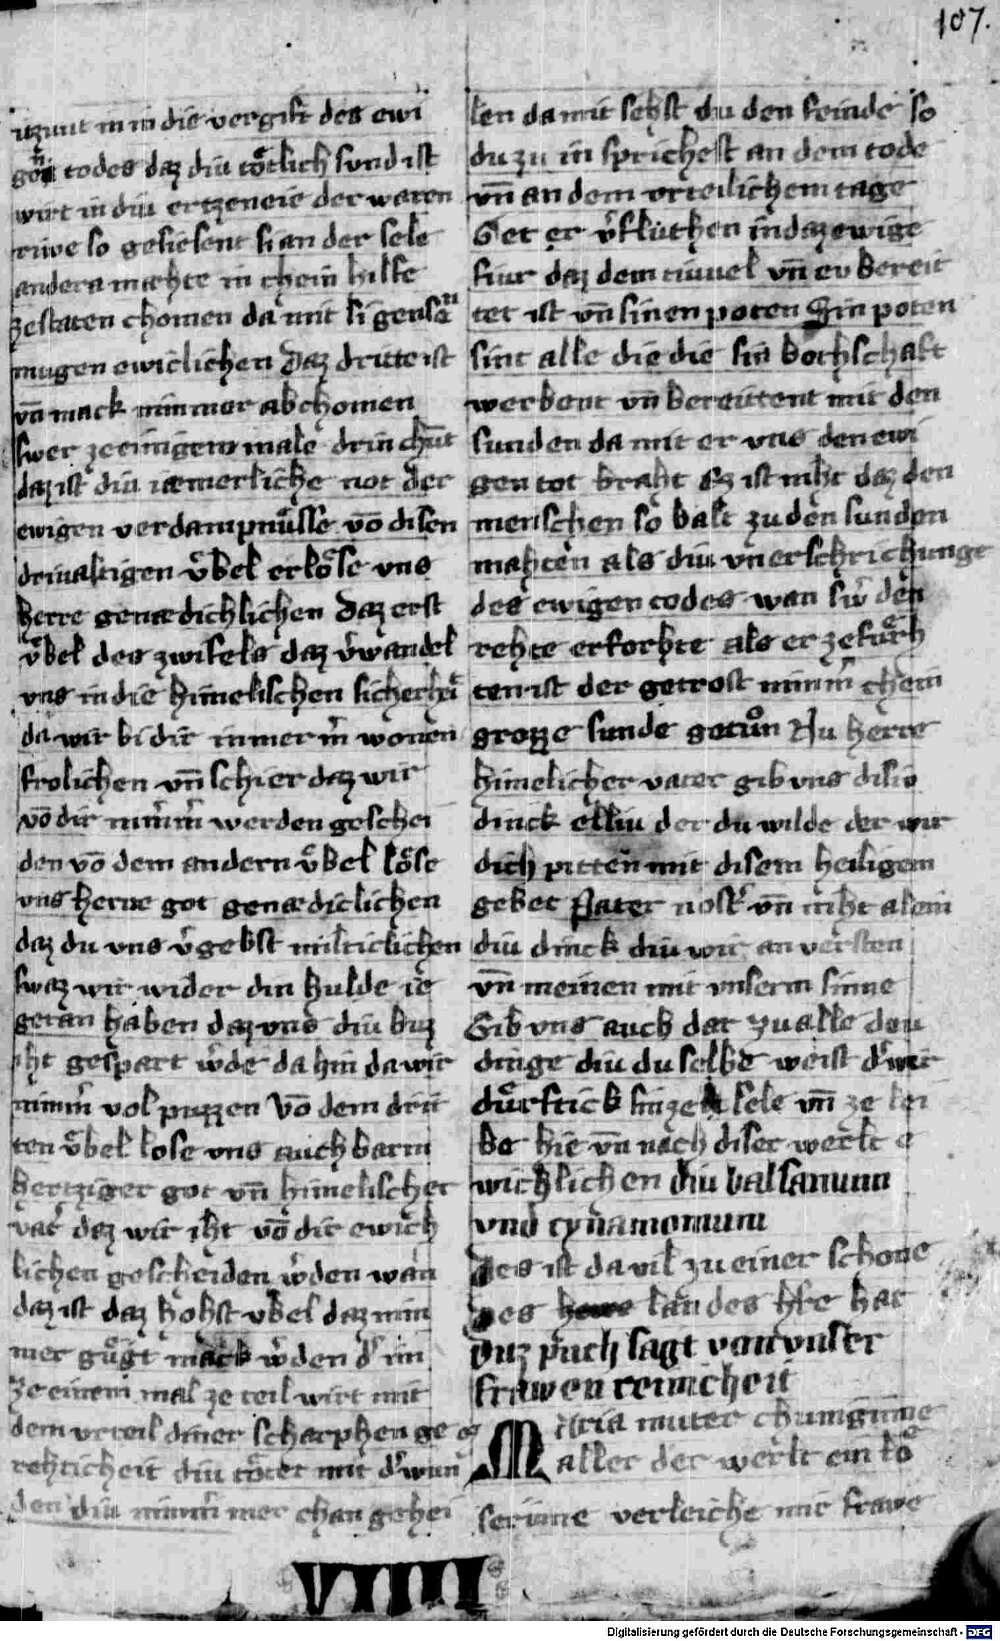 107.
itzunt in in die vergift des ewi
gen todes daz diu toͤtlich sund ist
wirt in diu ertzeneie der waren
riwe so gesiesent si an der sele
anders mæhte in chein hilfe
zestaten chomen da mit si genesen
mugen ewiclichen Daz dritte ist
vn̄ mack nimmer abchomen
swer zeeinigem male drin chu̅t
daz ist diu iæmerliche not der
ewigen verdampnuͤsse võ disen
drivaltigen vͤbel erloͤse vns
herre genædichlichen Daz erst
vͤbel des zwifels daz v̓wandel
vns in die himelischen sicherhei
da wir bi dir immerm̓ wonen
frolichen vn̄ schier daz wir
võ dir nim̓m̓ werden geschei
den võ dem andern vͤbel loͤse
vns herre got genædiclichen
daz du vns v̓gebst milticlichen
swaz wir wider din hulde ie
getan haben daz vns diu buz
iht gespart w̓de da hin da wir
nimm̓ vol puzzen Võ dem drit
ten vͤbel lose vns auch barm
hertziger got vn̄ himelischer
vat̓ daz wir iht võ dir ewich
lichen gescheiden w̓den wan
daz ist daz hohst vbel daz nim
mer guͤgt mack w̓den d̓ im
ze einem mal ze teil wirt mit
dem vrteil diner scharphen ge
rehticheit diu toͤtet mit d̓ wun
den diu nimm̓ mer chan gehei
len da mit sehst du den feinde so
du zu in sprichest an dem tode
vn̄ an dem vrteilichem tage
Get er v̓fluͤchen in daz ewige
fiur daz dem tiuuel vn̄ ev bereit
tet ist vn̄ sinen poten Sin poten
sint alle die die sin botschaft
werbent vn̄ bereittent mit den
sunden da mit er vns den ewi
gen tot braht Ez ist niht daz den
menschen so balt zu den sunden
mahten als diu vnerschrichunge
des ewigen todes wan sw̓ den
rehte erforhte als er zefuͤrh
ten ist der getrost nimm̓ chein
grozze sunde getuͦn Nu herre
himelicher vater gib vns disiv
dinck elliu der du wilde der wir
dich pitten mit disem heiligem
gebet Pater nost̓ vn̄ niht alein
diu dinck diu wir an versten
vn̄ meinen mit vnserm sinne
Gib vns auch dar zu alle deu
dinge diu du selbe weist d̓ wir
duͤrftick sin ze sele vn̄ ze lei
be hie vn̄ nach diser werlt e
wichlichen diu balsamum
vnd cynamomum
Des ist da vil zu einer schone
Des landes hat
Duz puch sagt von vnser
frawen reinicheit
Maria muter chuniginne
aller der werlt ein loͤ
serinne verleiche mir frawe
VIIII
Digitalisierung gefördert durch die Deutsche Forschungsgemeinschaft - DFG